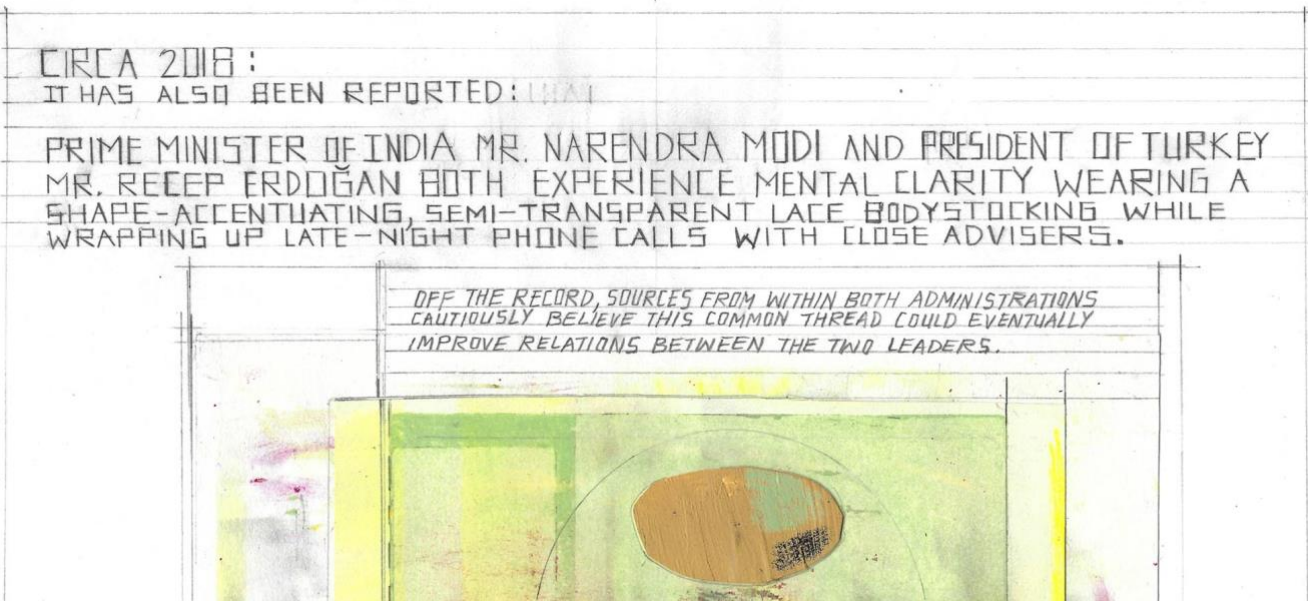 CIRCA 2018:
IT HAS ALSO BEEN REPORTED:
PRIME MINISTER OF INDIA MR. NARENDRA MODI AND PRESIDENT OF TURKEY
MR. RECEP ERDOĞAN BOTH EXPERIENCE MENTAL CLARITY WEARING A
SHAPE-ACCENTUATING, SEMI-TRANSPARENT LACE BODYSTOCKING WHILE
WRAPPING UP LATE-NIGHT PHONE CALLS WITH CLOSE ADVISERS.
OFF THE RECORD, SOURCES FROM WITHIN BOTH ADMINISTRATIONS
CAUTIOUSLY BELIEVE THIS COMMON THREAD COULD EVENTUALLY
IMPROVE RELATIONS BETWEEN THE TWO LEADERS.